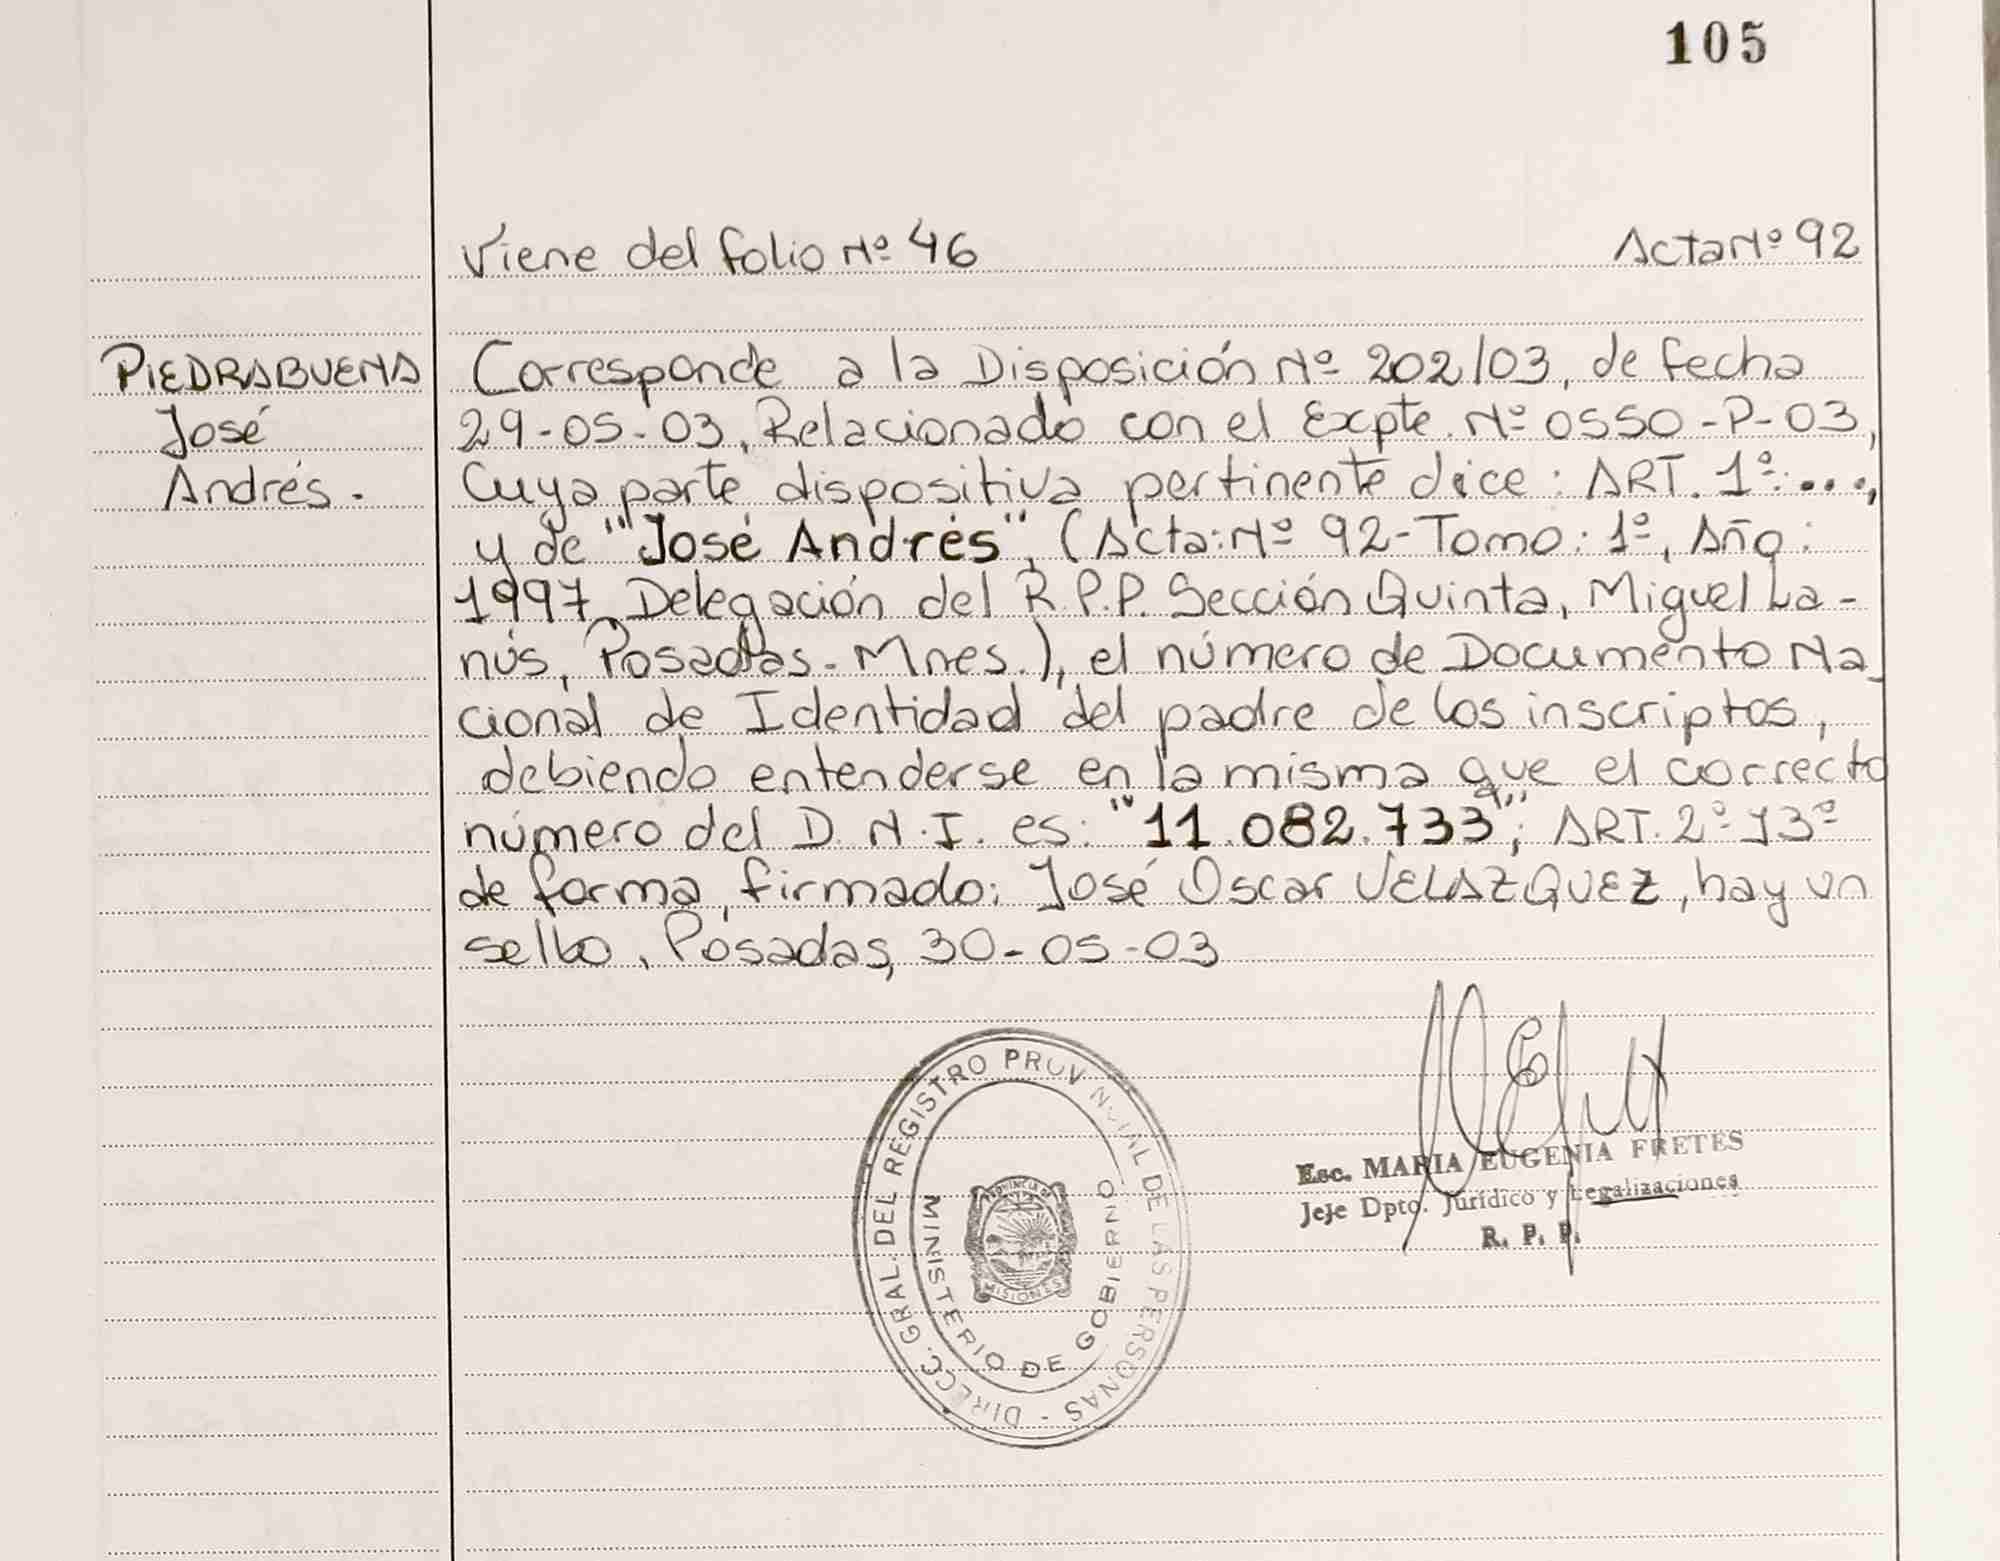 105
Viene del folio Nº 46 Acta Nº 92
PIEDRABUENA
José
Andrés.
Corresponde a la Disposición Nº 202/03, de fecha
29-05-03, Relacionado con el Expte. Nº 0550-P-03,
Cuya parte dispositiva pertinente dice: ART. 1º: ...,
y de "José Andrés", (Acta: Nº 92-Tomo: 1º, Año:
1997, Delegación del R.P.P. Sección Quinta, Miguel La-
nús, Posadas-Mnes.), el número de Documento Na_
cional de Identidad del padre de los inscriptos,
debiendo entenderse en la misma que el correcto
número del D.N.I. es: "11.082.733"; ART. 2º y 3º
de forma, firmado: José Oscar VELAZQUEZ, hay un
sello, Posadas, 30-05-03
DIRECC. GRAL. DEL REGISTRO PROVINCIAL DE LAS PERSONAS -
MINISTERIO DE GOBIERNO
PROVINCIA DE
MISIONES
Esc. MARIA EUGENIA FRETES
Jefe Dpto. Jurídico y Legalizaciones
R. P. P.